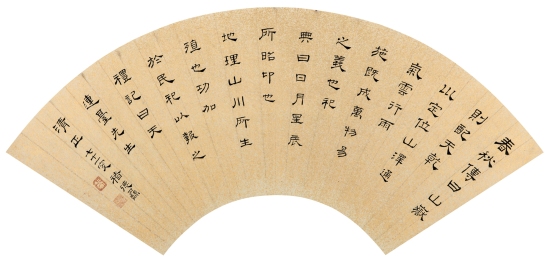 春秋傳曰山嶽
則配天乾
以定位山澤通
氣雲行雨
施既成萬物易
之義也祀
典曰日月星辰
所昭卬也
地理山川所生
殖也功加
於民祀以報之
禮記曰天
先生
清正 褚德彝